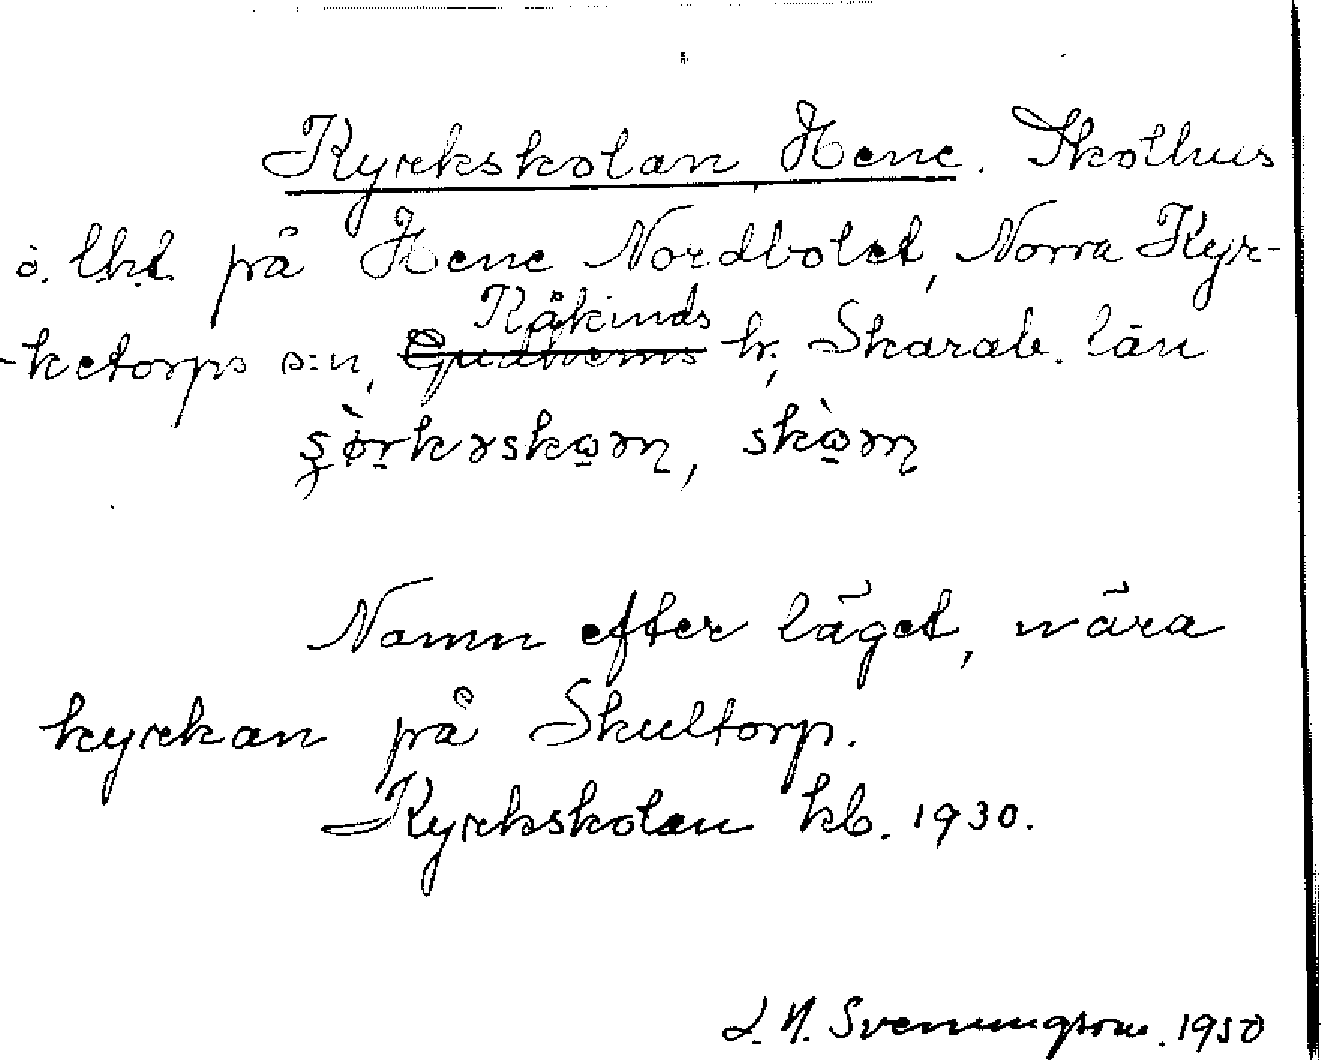 Kyrkskolan, Hene. Skolhus
o. lht. på Hene Nordbolet, Norra Kyr-
-ketorps s:n, Kåkinds
Gudhems hr, Skarab. län
Namn efter läget, nära
kyrkan på Skultorp.
Kyrkskolan kb. 1930.
Svenungsson. 1950